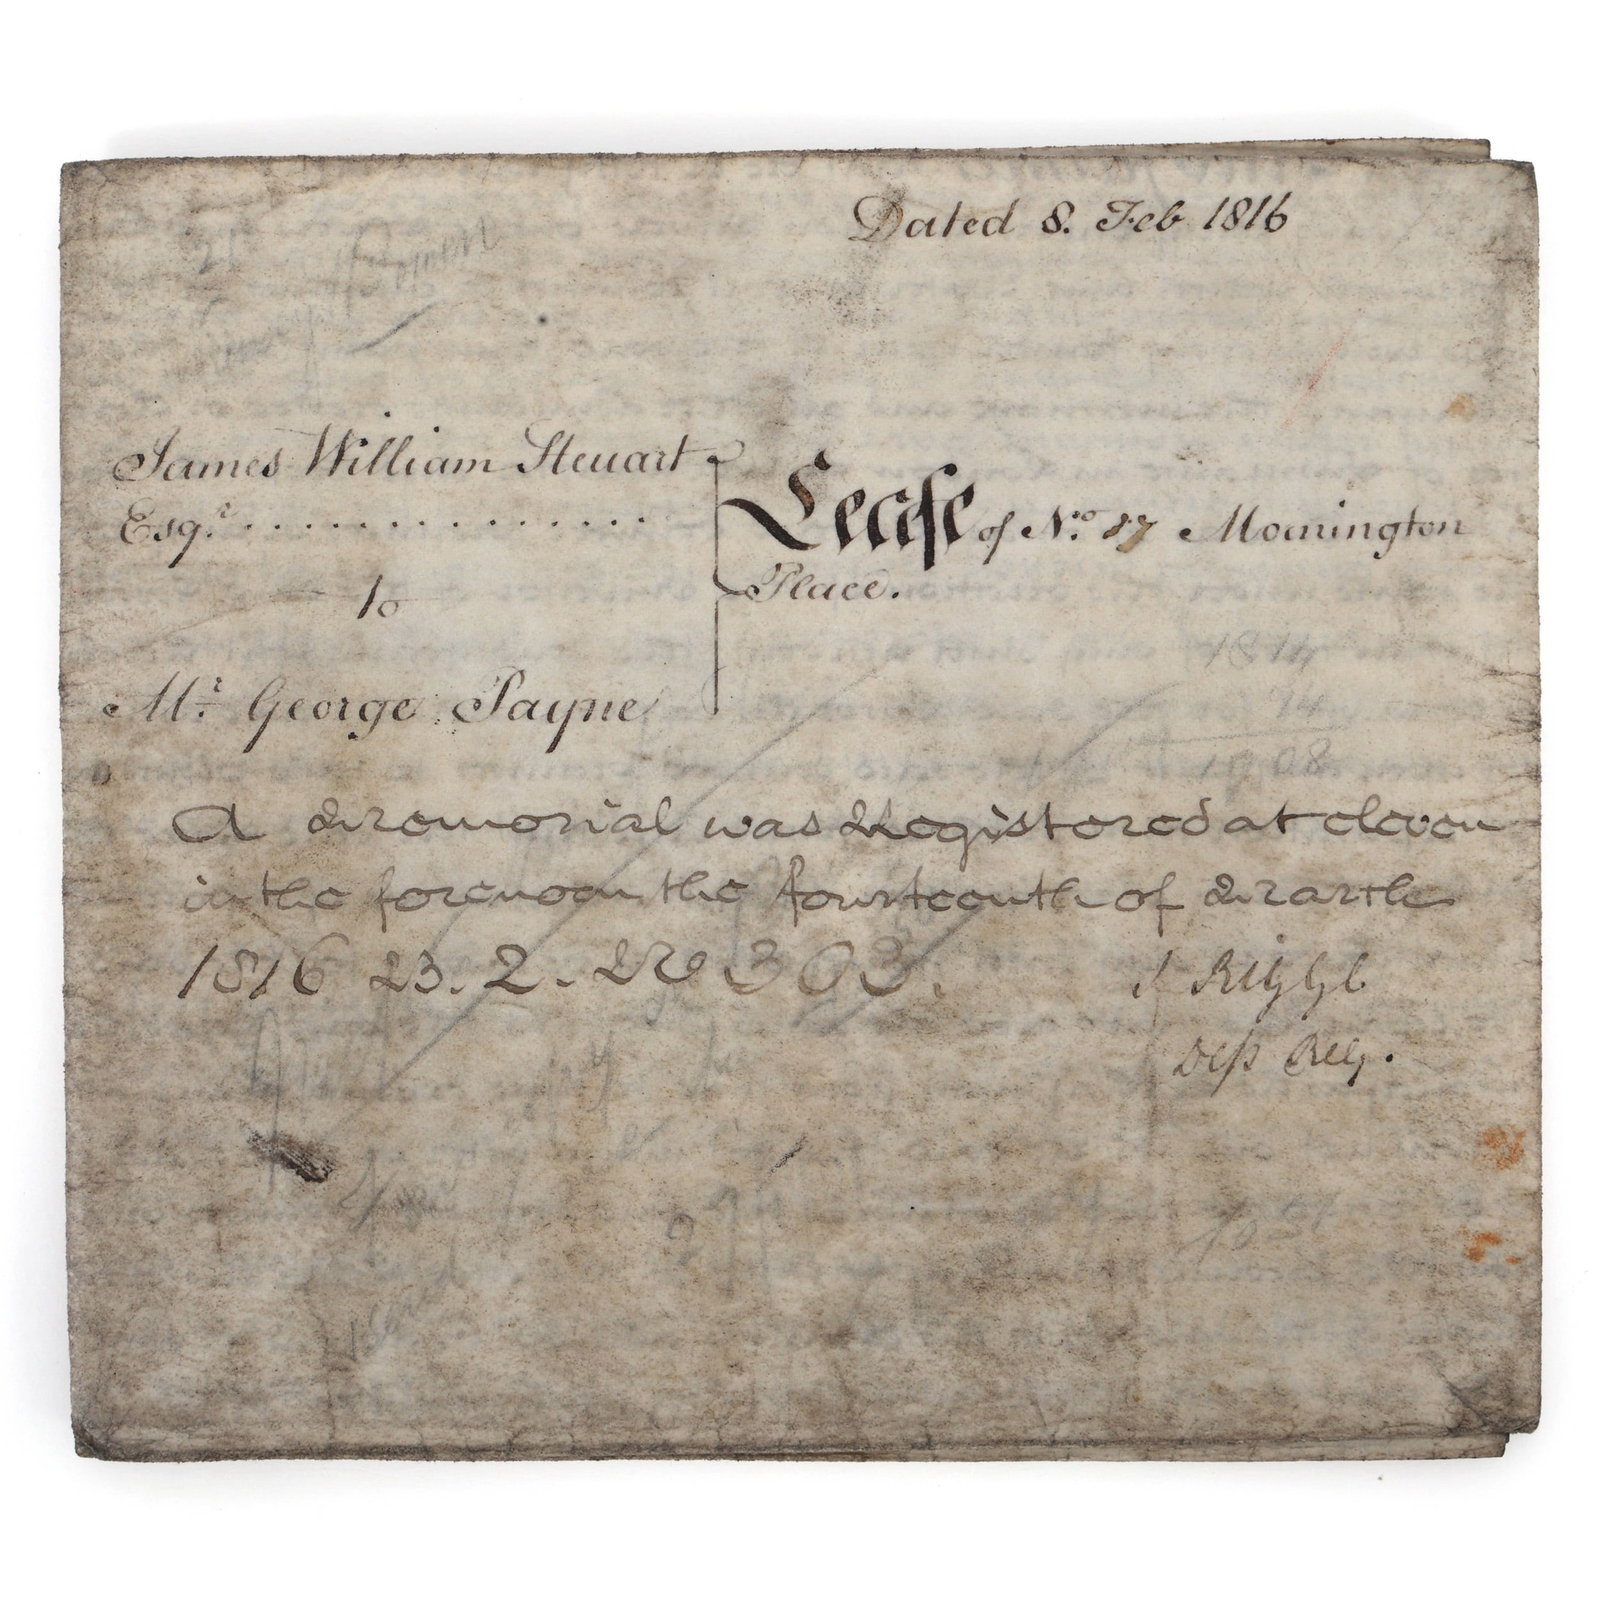 Dated 8. Feb 1816
James William Steuart
Esqr. . . . . . . . . . . . . . .
to
Mr. George Payne
Lease of No. 17 Mornington
Place.
1814
94
1908
A Memorial was Registered at eleven
in the forenoon the fourteenth of March
1816 B. 2. No 303.
J Rigge
Dep Reg.